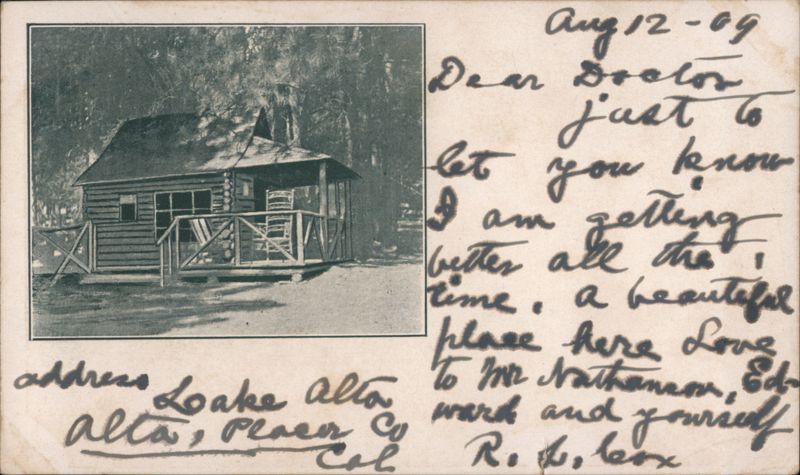 Aug 12 - 09
Dear Doctor
just to
let you know
I am getting
better all the
time, a beautiful
place here Love
to Mr Nathanson, Ed-
ward and yourself
R. L. Cox
address
Lake Alta
Alta, Placer Co
Cal